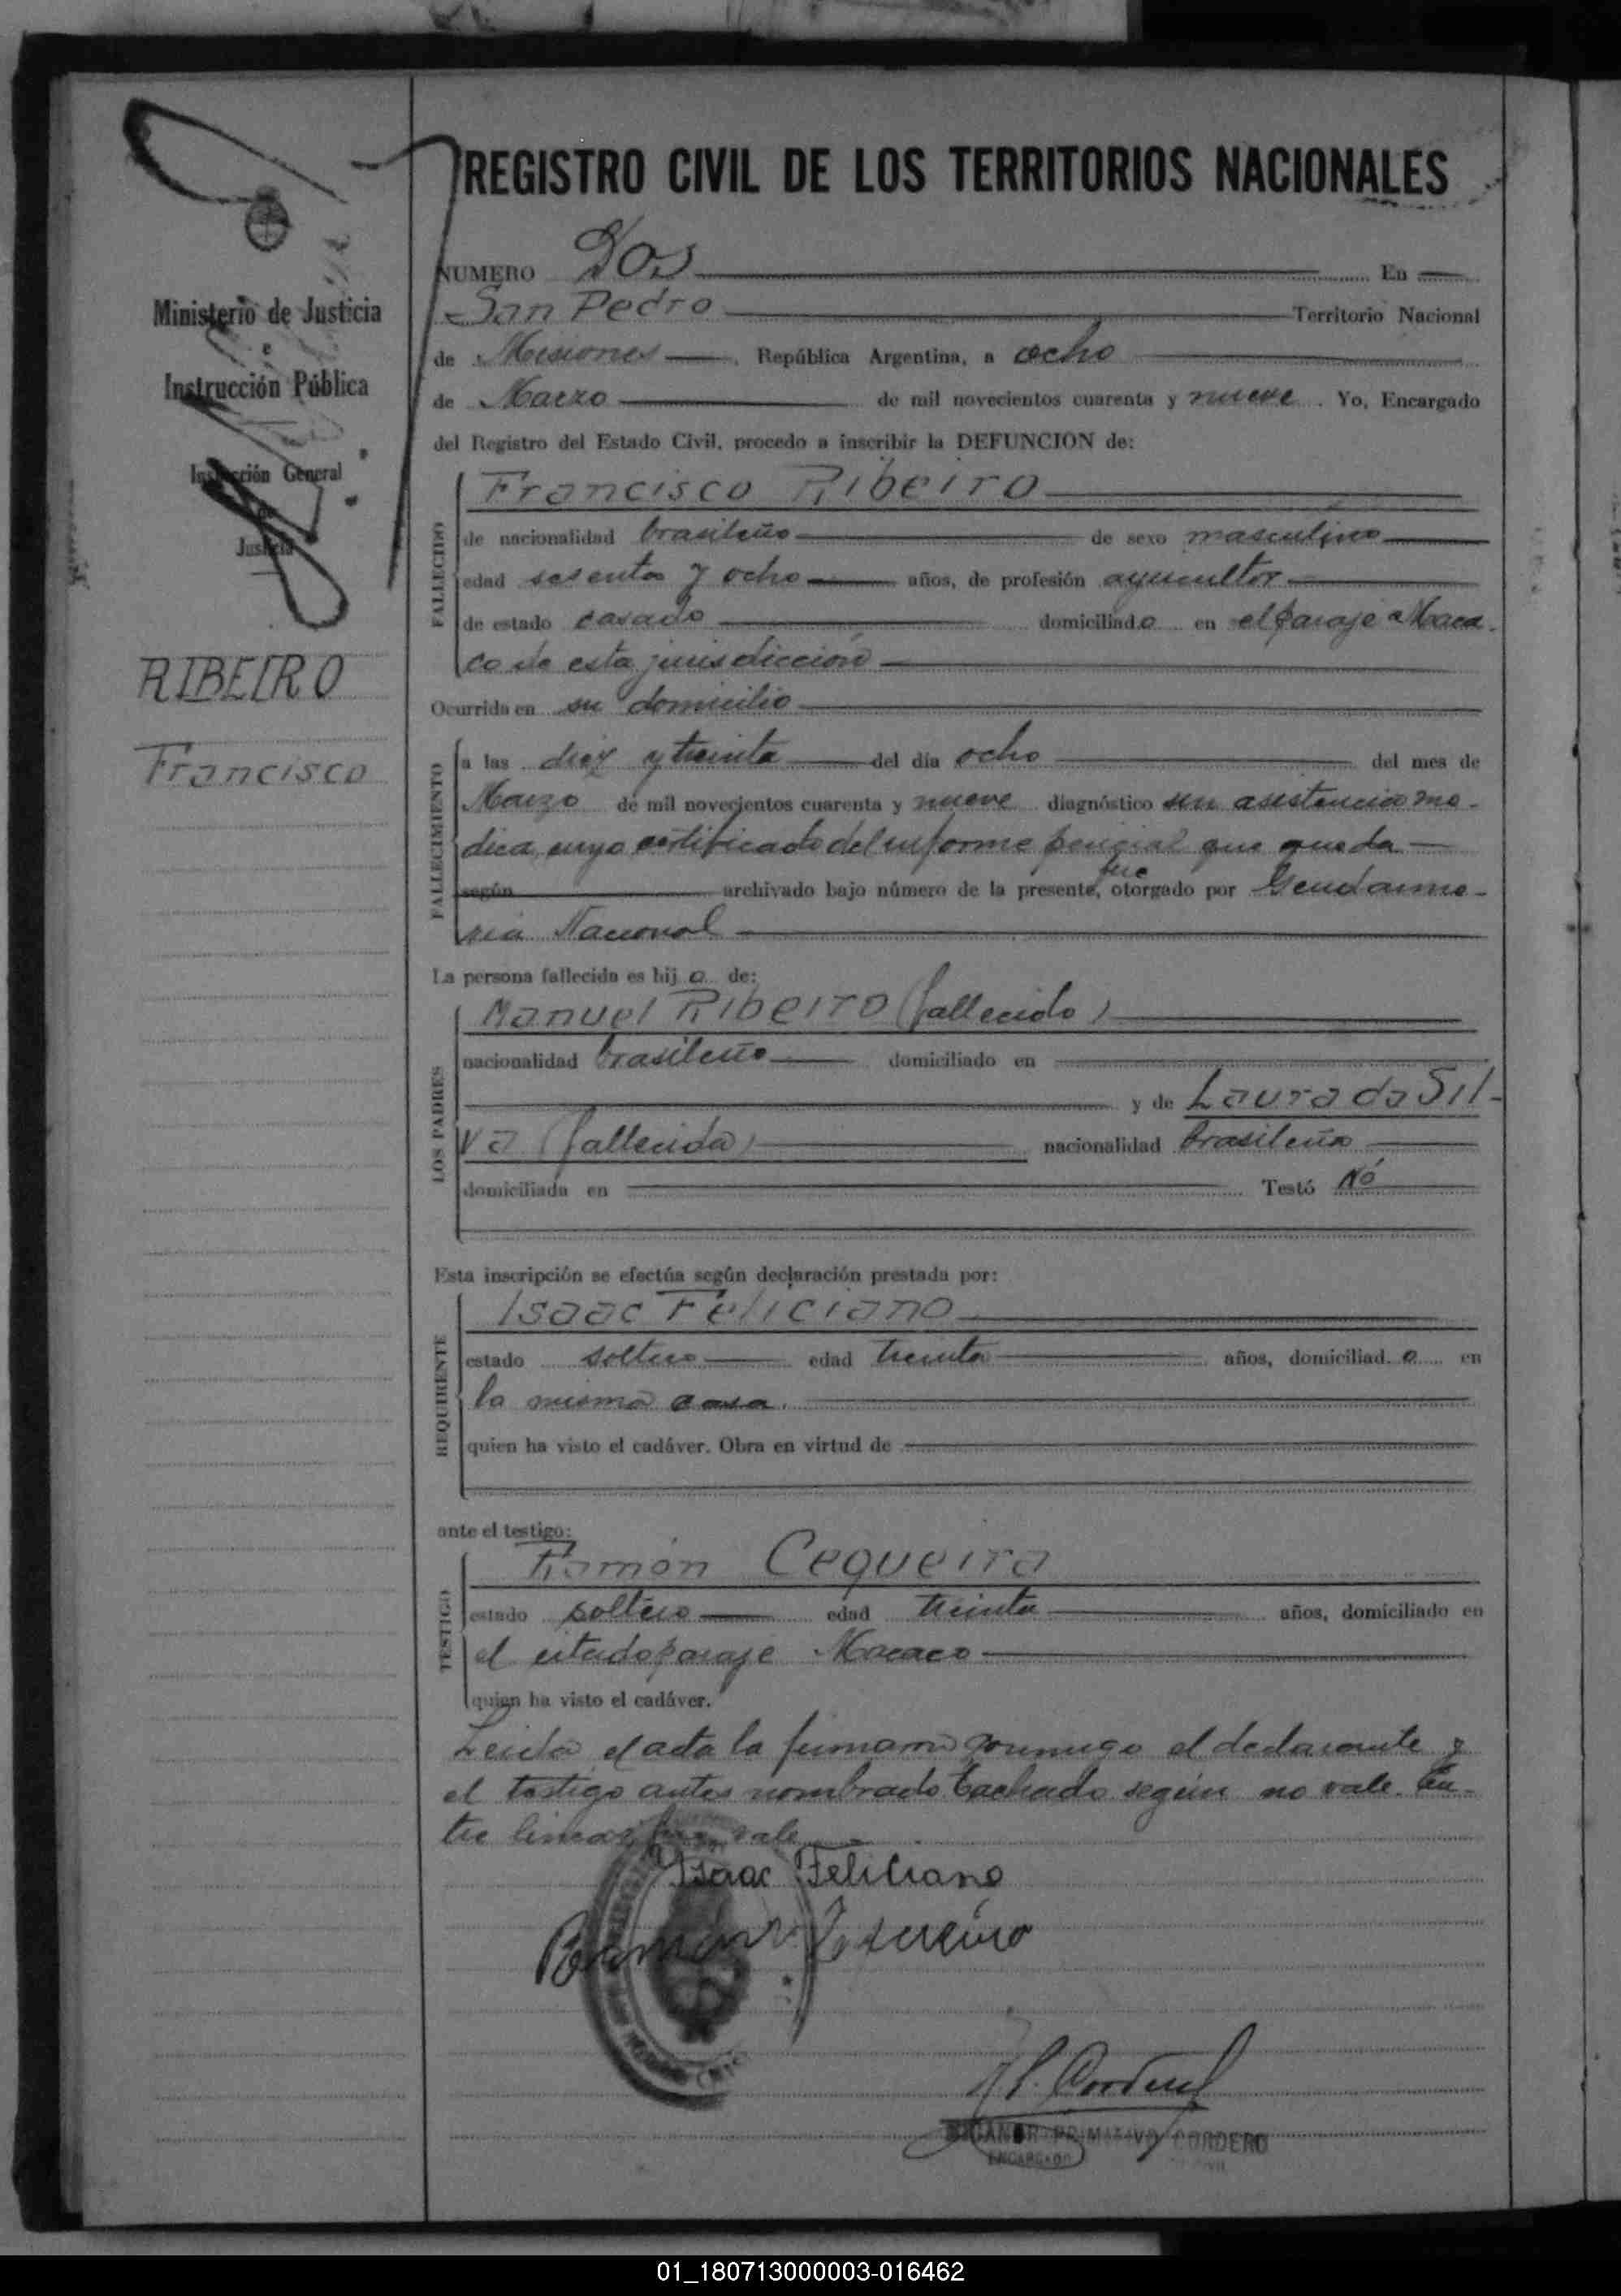 REGISTRO CIVIL DE LOS TERRITORIOS NACIONALES
Ministerio de Justicia
e
Instrucción Pública
Inspección General
de
Justicia
RIBEIRO
Francisco
NUMERO Dos En
San Pedro Territorio Nacional
de Misiones, República Argentina, a ocho
de Marzo de mil novecientos cuarenta y nueve. Yo, Encargado
del Registro del Estado Civil, procedo a inscribir la DEFUNCION de:
FALLECIDO
Francisco Ribeiro
de nacionalidad brasileño de sexo masculino
edad sesenta y ocho años, de profesión
de estado casado domiciliado en el paraje Maca
co de esta jurisdicción
Ocurrida en su domicilio
FALLECIMIENTO
a las diez y treinta del día ocho del mes de
Marzo de mil novecientos cuarenta y nueve diagnóstico sin asistencia mé-
dica, cuyo certificado del informe pericial que queda
según archivado bajo número de la presente, fue otorgado por Gendarme-
ria Nacional
La persona fallecida es hijo de:
LOS PADRES
Manuel Ribeiro (fallecido)
nacionalidad brasileño domiciliado en
y de Laura da Sil-
va (fallecida) nacionalidad brasileña
domiciliada en Testó Nó
Esta inscripción se efectúa según declaración prestada por:
REQUIRENTE
Isaac Feliciano
estado soltero edad treinta años, domiciliado en
la misma casa.
quien ha visto el cadáver. Obra en virtud de
ante el testigo:
TESTIGO
Ramón Cequeira
estado soltero edad treinta años, domiciliado en
el citado paraje Macaco
quien ha visto el cadáver.
Leida el acta la firmaron conmigo el declarante y
el testigo antes nombrado Tachado según no vale. En-
tre lineas fue vale
Isaac Feliciano
Ramon
N P. Cordero
NICANOR PRIMITIVO CORDERO
ENCARGADO
01_180713000003-016462